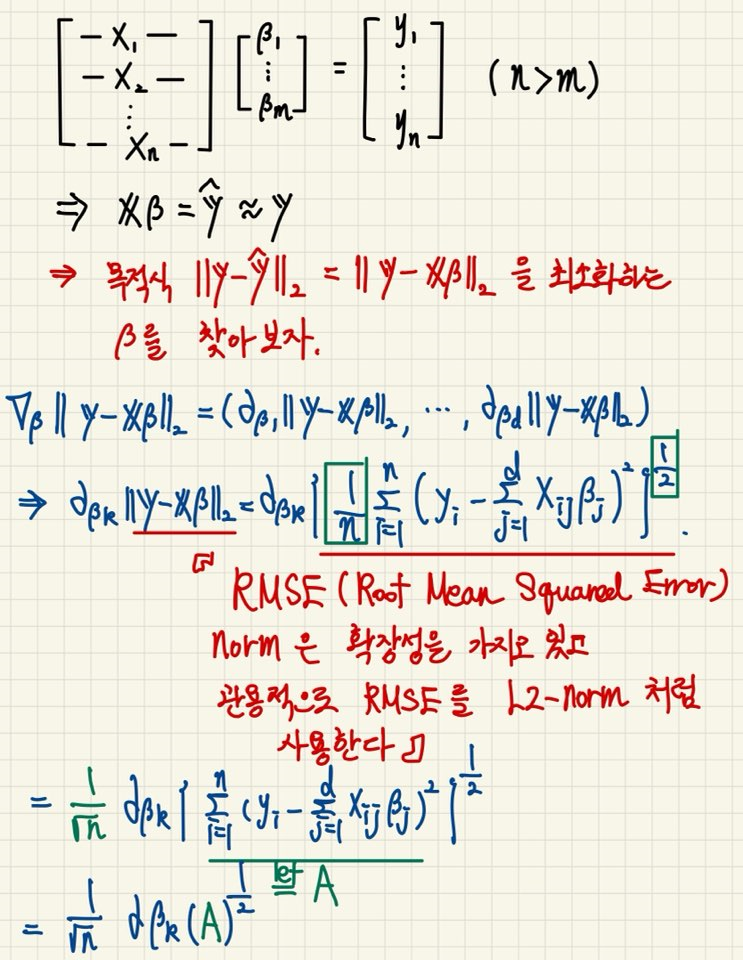 [ — X₁ — ; — X₂ — ; ⋮ ; — Xₙ — ] [ β₁ ; ⋮ ; βm ] = [ y₁ ; ⋮ ; yₙ ] (n>m)
⇒ 𝕏β = ŷ ≈ y
⇒ 목적식 ||y-ŷ||₂ = ||y-𝕏β||₂ 을 최소화하는
β를 찾아보자.
∇β ||y-𝕏β||₂ = (∂β₁||y-𝕏β||₂, ⋯, ∂βd||y-𝕏β||₂)
⇒ ∂βk ||y-𝕏β||₂ = ∂βk { 1/n Σⁿᵢ₌₁ (yᵢ - Σᵈⱼ₌₁ Xᵢⱼβⱼ)² }^(1/2) .
RMSE (Root Mean Squared Error)
norm은 확장성을 가지고 있고
관용적으로 RMSE를 L2-norm 처럼
사용한다
= 1/√n ∂βk { Σⁿᵢ₌₁ (yᵢ - Σᵈⱼ₌₁ Xᵢⱼβⱼ)² }^(1/2)
let A
= 1/√n ∂βk (A)^(1/2)